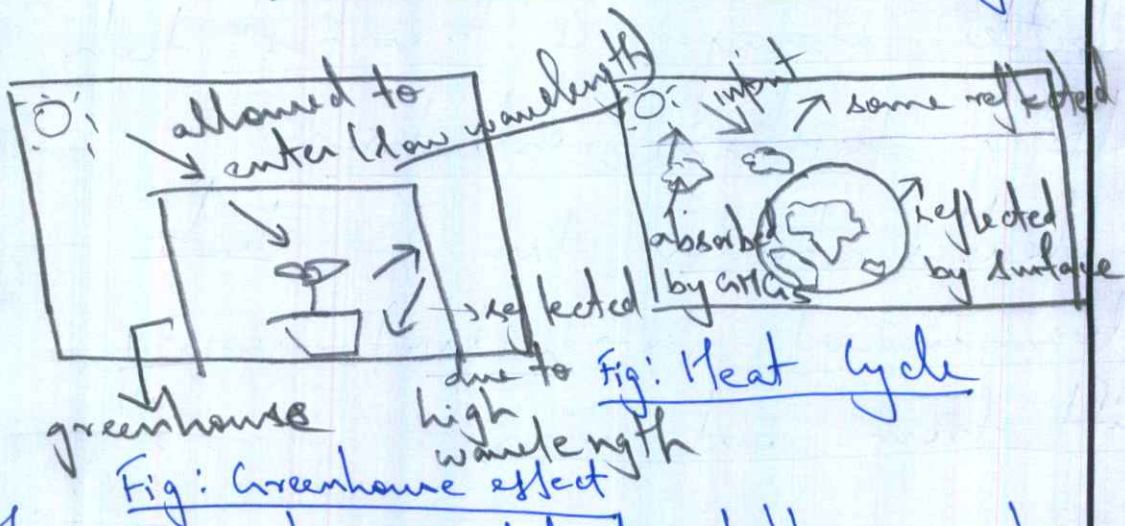 allowed to
enter (low wavelength)
reflected
due to
high
wavelength
greenhouse
Fig: Greenhouse effect
input
some reflected
absorbed
by GHGs
reflected
by surface
Fig: Heat Cycle